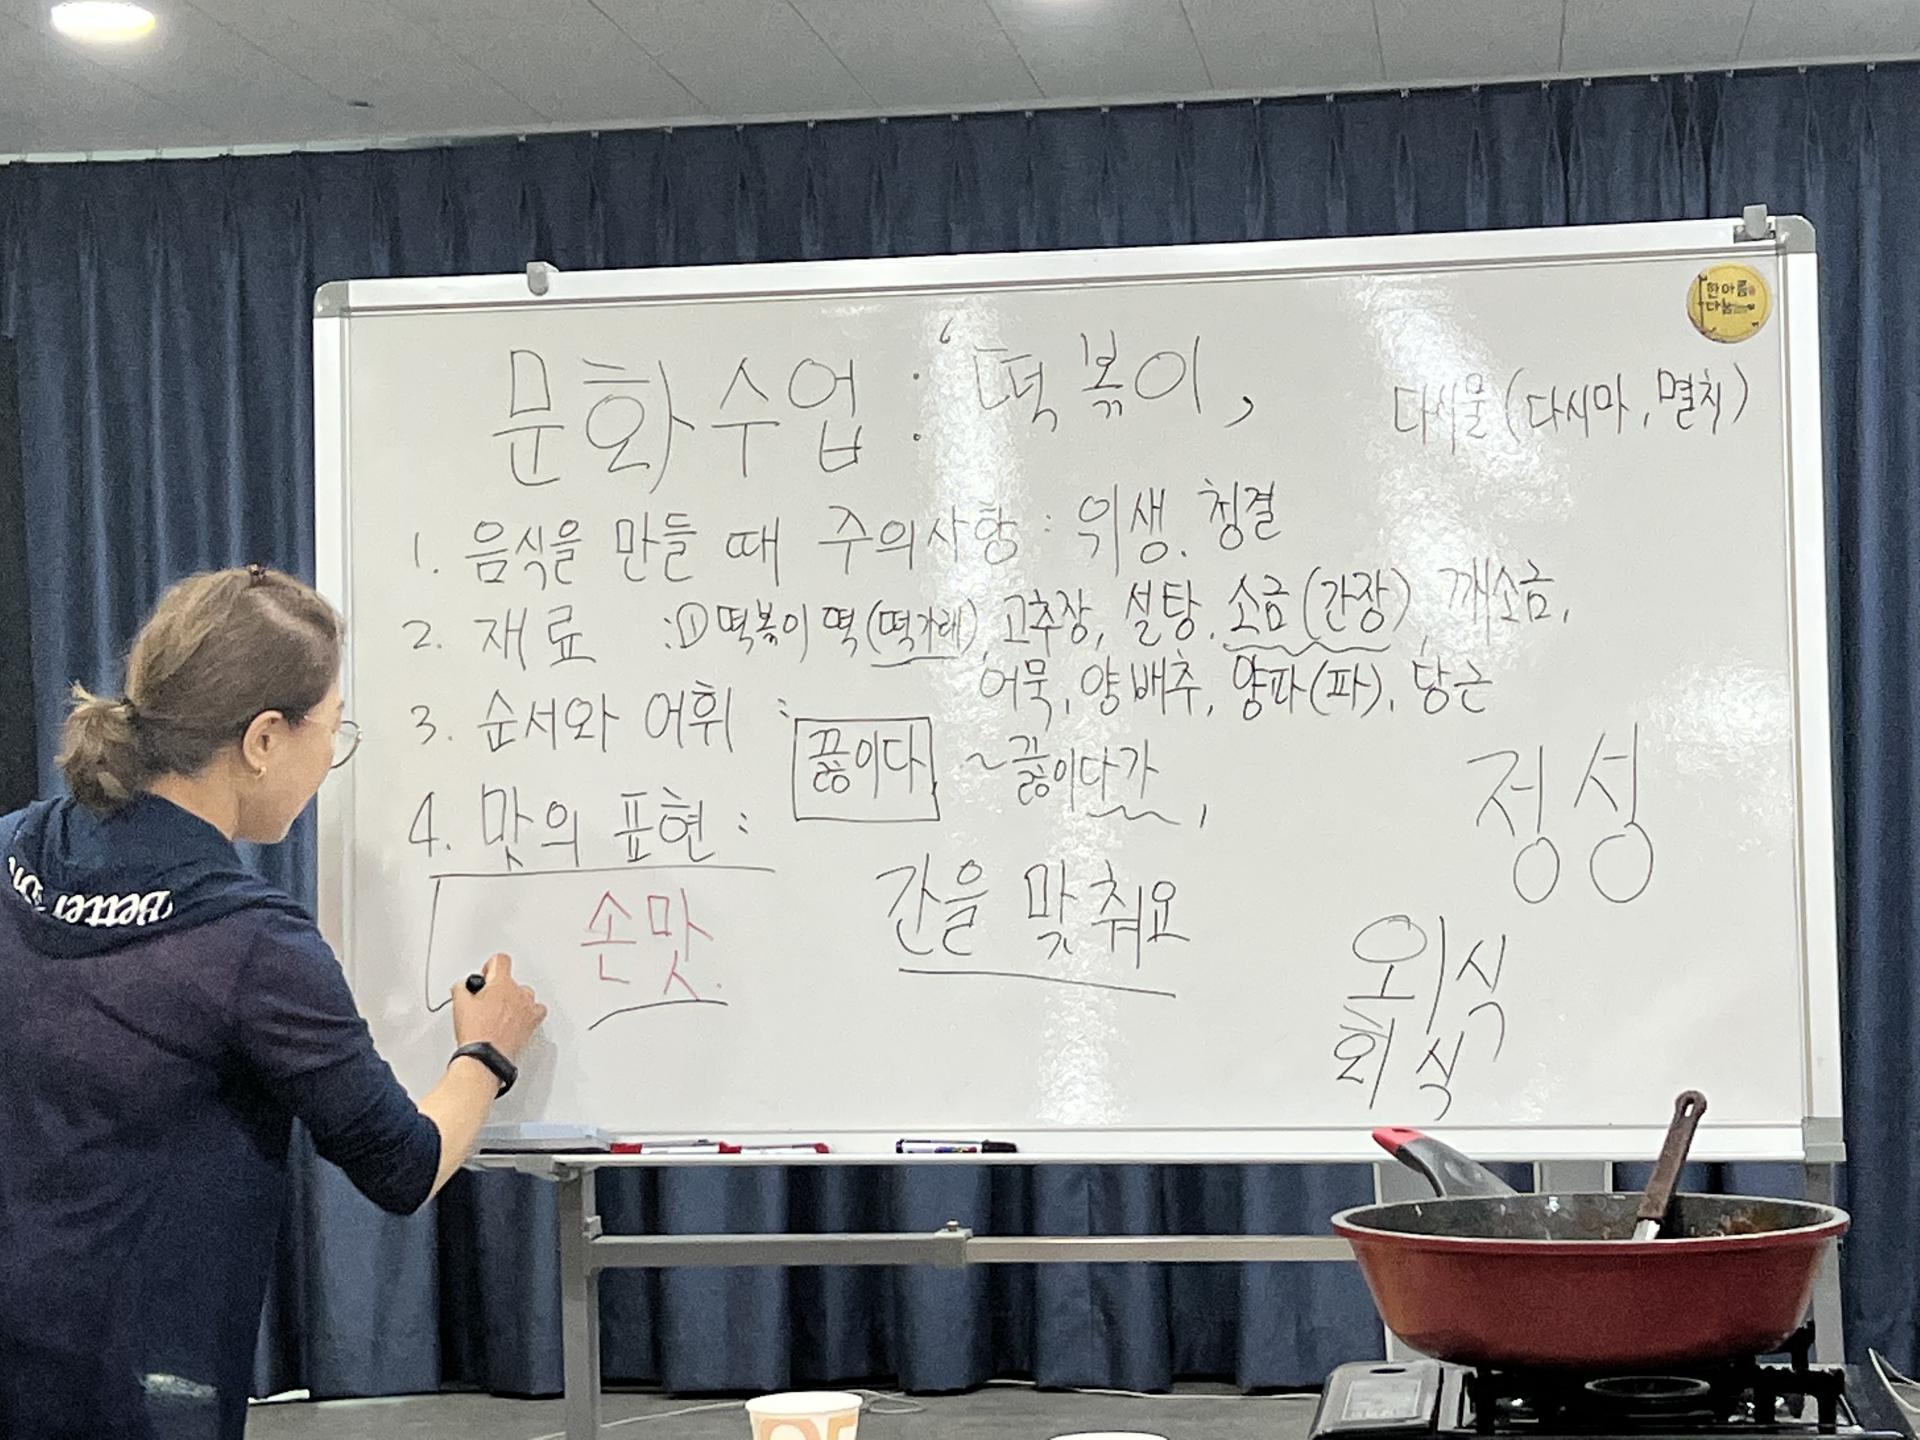 문화수업 : '떡볶이,
다시물(다시마, 멸치)
1. 음식을 만들 때 주의사항 : 위생. 청결
2. 재료 : ① 떡볶이 떡(떡가래), 고추장, 설탕, 소금(간장), 깨소금,
어묵, 양배추, 양파(파), 당근
3. 순서와 어휘 :
끓이다 ~끓이다가,
4. 맛의 표현 :
손맛.
간을 맞춰요
정성
외식
회식
한아름
Better